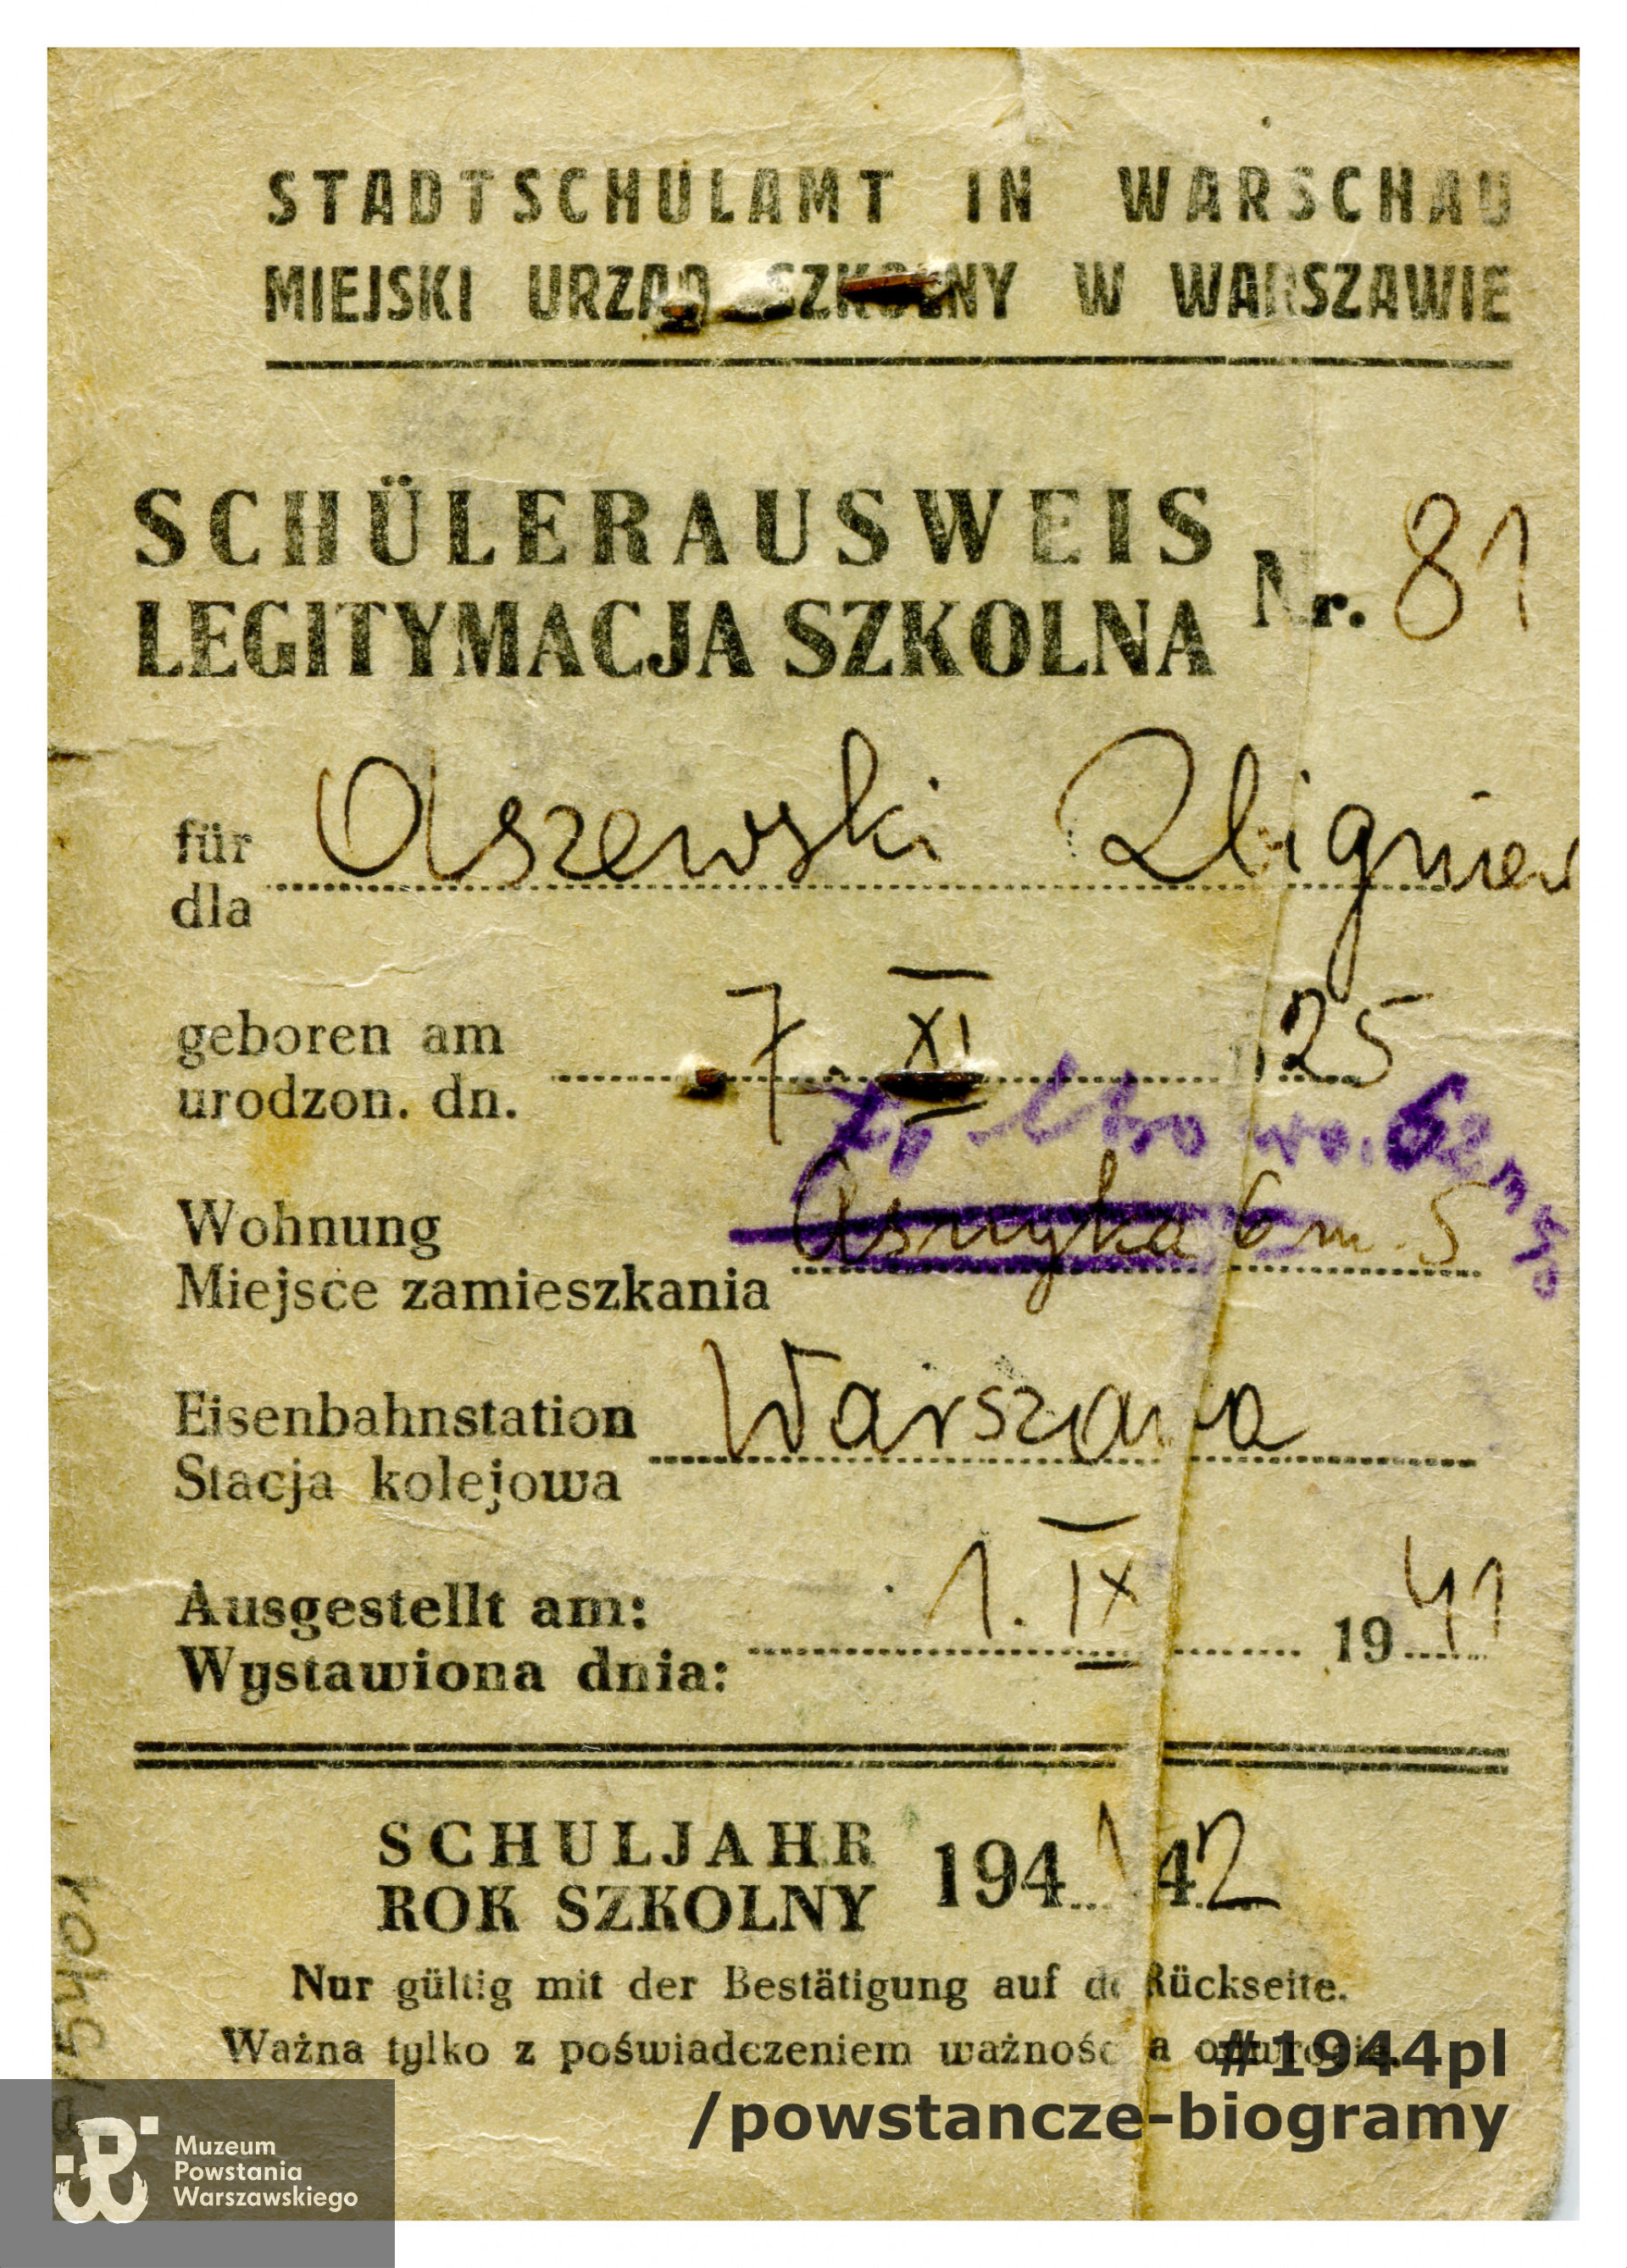 STADTSCHULAMT IN WARSCHAU
MIEJSKI URZĄD SZKOLNY W WARSZAWIE
SCHÜLERAUSWEIS
LEGITYMACJA SZKOLNA
Nr. 81
für Olszewski Zbigniew
dla
geboren am
urodzon. dn. 7. XI 25
Wohnung
Miejsce zamieszkania Asnyka 6 m. 5
Eisenbahnstation
Stacja kolejowa Warszawa
Ausgestellt am:
Wystawiona dnia: 1. IX 1941
SCHULJAHR
ROK SZKOLNY 1941 42
Nur gültig mit der Bestätigung auf de Rückseite.
Ważna tylko z poświadczeniem ważnośc a odwrocie.
#1944pl
/powstancze-biogramy
Muzeum
Powstania
Warszawskiego